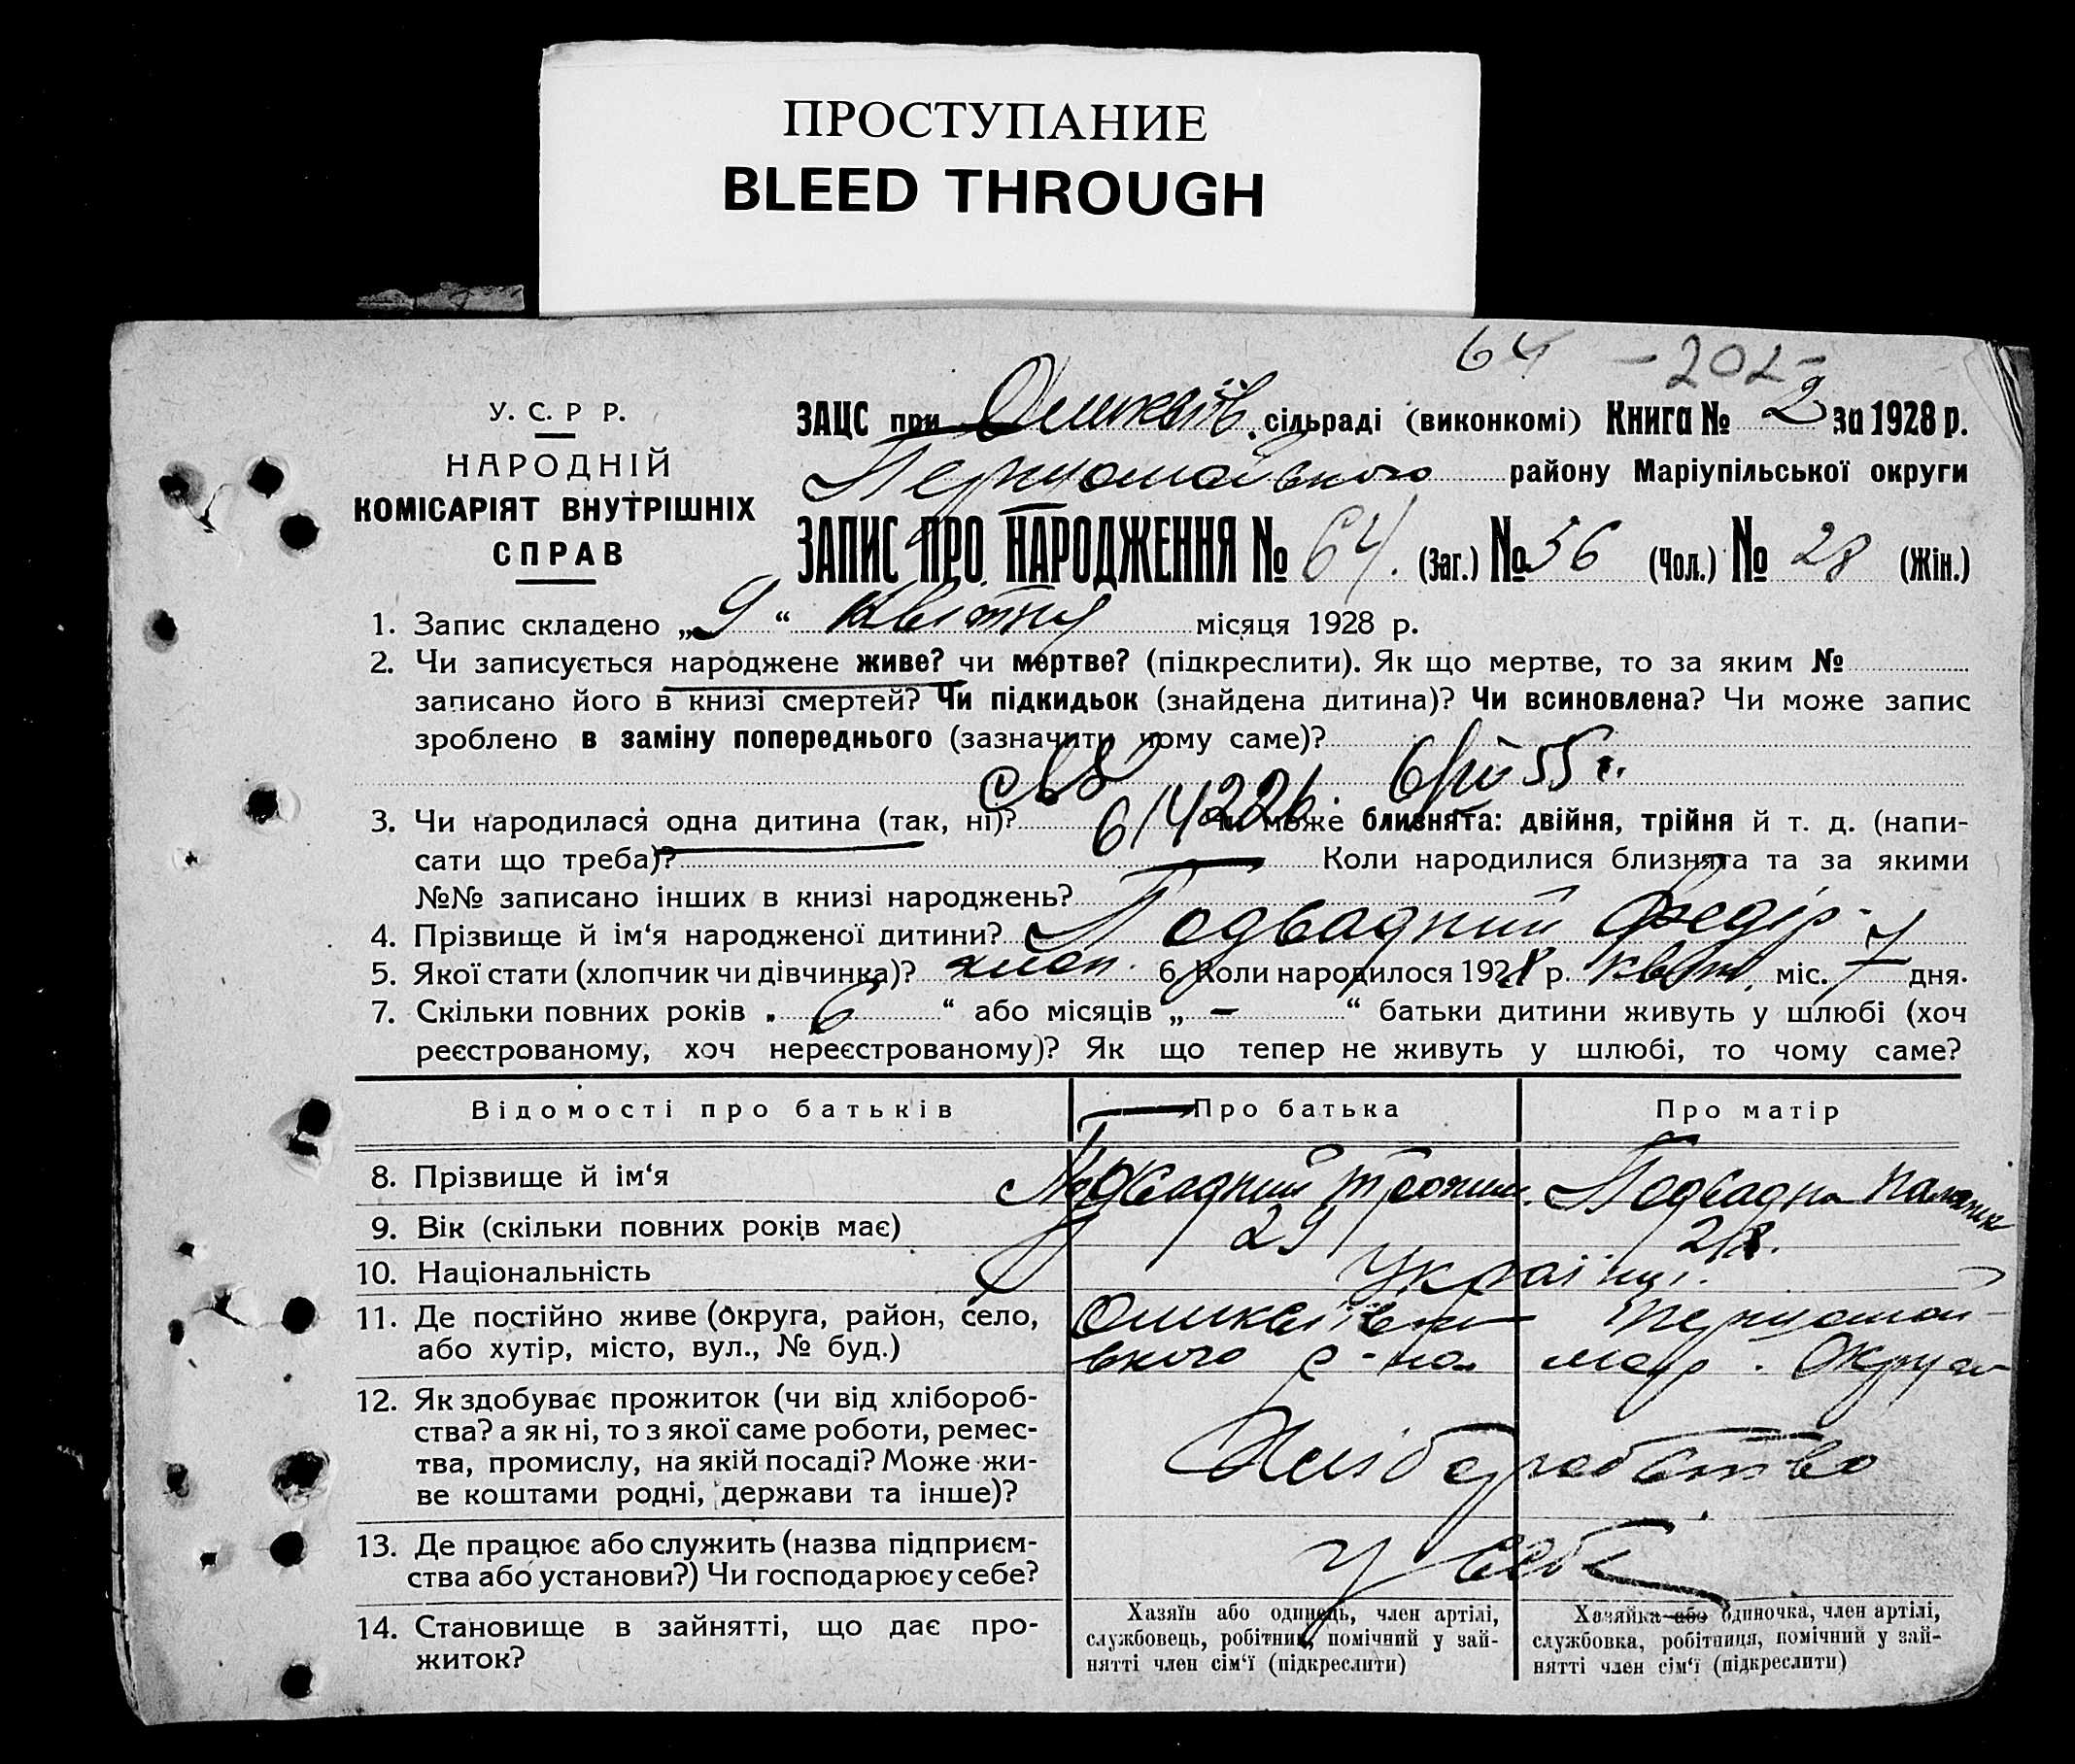 ПРОСТУПАНИЕ
BLEED THROUGH
64 - 202 -
У. С. Р Р.
НАРОДНІЙ
КОМІСАРІЯТ ВНУТРІШНІХ
СПРАВ
ЗАЦС при сільраді (виконкомі) Книга № 2 за 1928 р.
Першомайського району Маріупільської округи
ЗАПИС ПРО НАРОДЖЕННЯ № 64. (Заг.) № 36 (Чол.) № 28 (Жін.)
1. Запис складено „9“ квітня місяця 1928 р.
2. Чи записується народжене живе? чи мертве? (підкреслити). Як що мертве, то за яким №
записано його в книзі смертей? Чи підкидьок (знайдена дитина)? Чи всиновлена? Чи може запис
зроблено в заміну попереднього (зазначити чому саме)?
55 г.
3. Чи народилася одна дитина (так, ні)? Чи може близнята: двійня, трійня й т. д. (напи-
сати що треба)? Коли народилися близнята та за якими
№№ записано інших в книзі народжень?
4. Прізвище й ім‘я народженої дитини? Подвадний Федір
5. Якої стати (хлопчик чи дівчинка)? хлоп. 6. Коли народилося 1928 р. квітн. міс. 7 дня.
7. Скільки повних років „ 6 “ або місяців „ — “ батьки дитини живуть у шлюбі (хоч
реєстрованому, хоч нереєстрованому)? Як що тепер не живуть у шлюбі, то чому саме?
Відомості про батьків Про батька Про матір
8. Прізвище й ім‘я Подвадний Подвадна
9. Вік (скільки повних років має) 29
10. Національність Українці.
11. Де постійно живе (округа, район, село, Першомай-
або хутір, місто, вул., № буд.) ського р-на Мар. Округи
12. Як здобуває прожиток (чи від хлібороб-
ства? а як ні, то з якої саме роботи, ремес-
тва, промислу, на якій посаді? Може жи-
ве коштами родні, держави та інше)?
Хліборобство
13. Де працює або служить (назва підприєм-
ства або установи?) Чи господарює у себе?
у себе
14. Становище в зайнятті, що дає про-
житок?
Хазяїн або одинець, член артілі,
службовець, робітник, помічний у зай-
нятті член сім‘ї (підкреслити)
Хазяйка або одиночка, член артілі,
службовка, робітниця, помічний у зай-
нятті член сім‘ї (підкреслити)